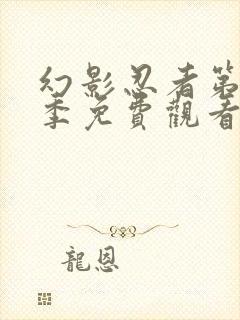 幻影忍者第
季免費觀看
龍恩